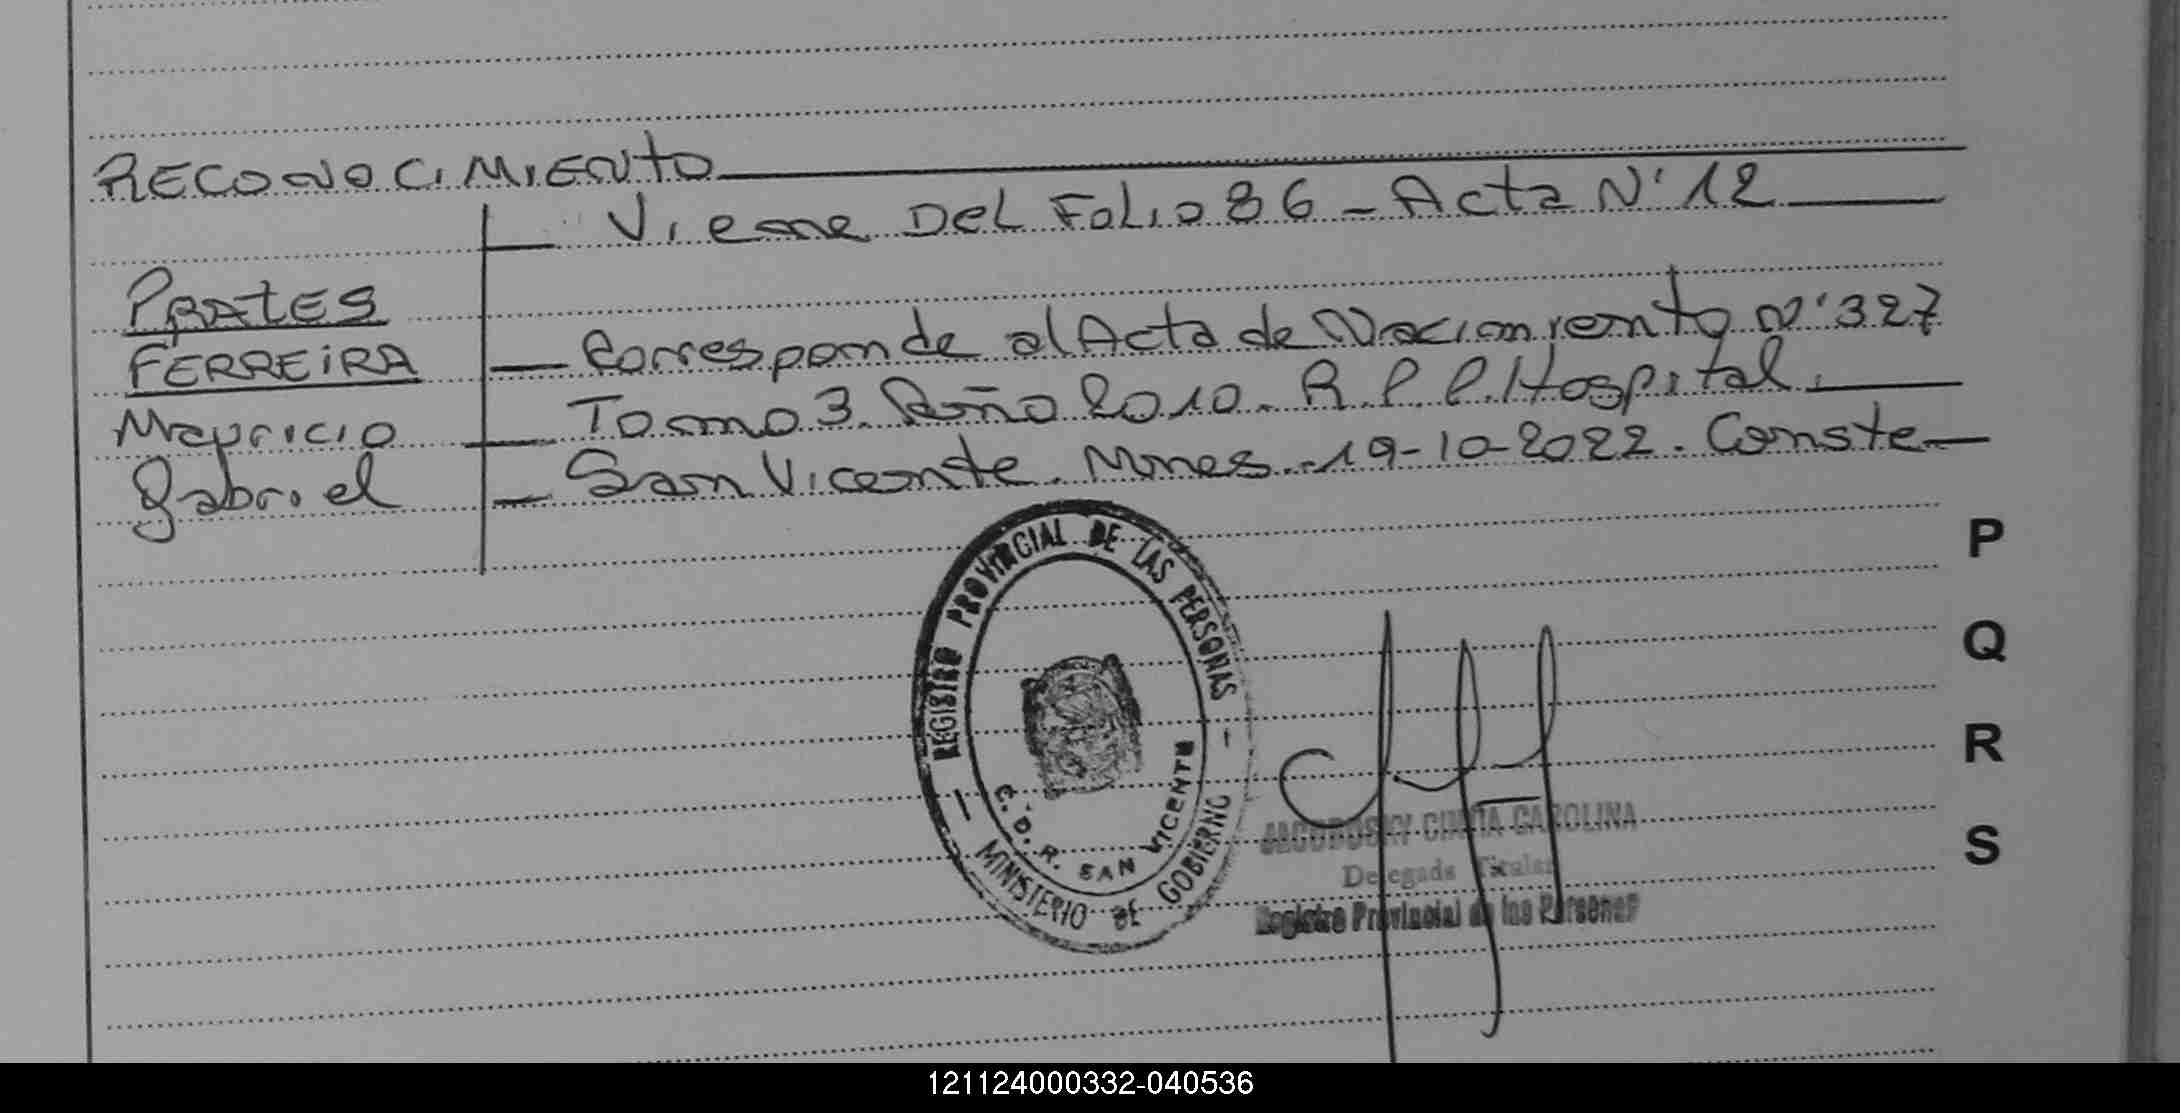 RECONOCIMIENTO
Viene Del Folio 86 - Acta N° 12
PRATES
FERREIRA
Mauricio
Gabriel
Corresponde al Acta de Nacimiento N° 327
Tomo 3. Año 2010. R.P.P. Hospital.
San Vicente. Mnes. 19-10-2022. Conste
REGISTRO PROVINCIAL DE LAS PERSONAS
MINISTERIO DE GOBIERNO
C.D.R. SAN VICENTE
JACUBOSKY CINTIA CAROLINA
Delegada Titular
Registro Provincial de las Personas
P
Q
R
S
121124000332-040536